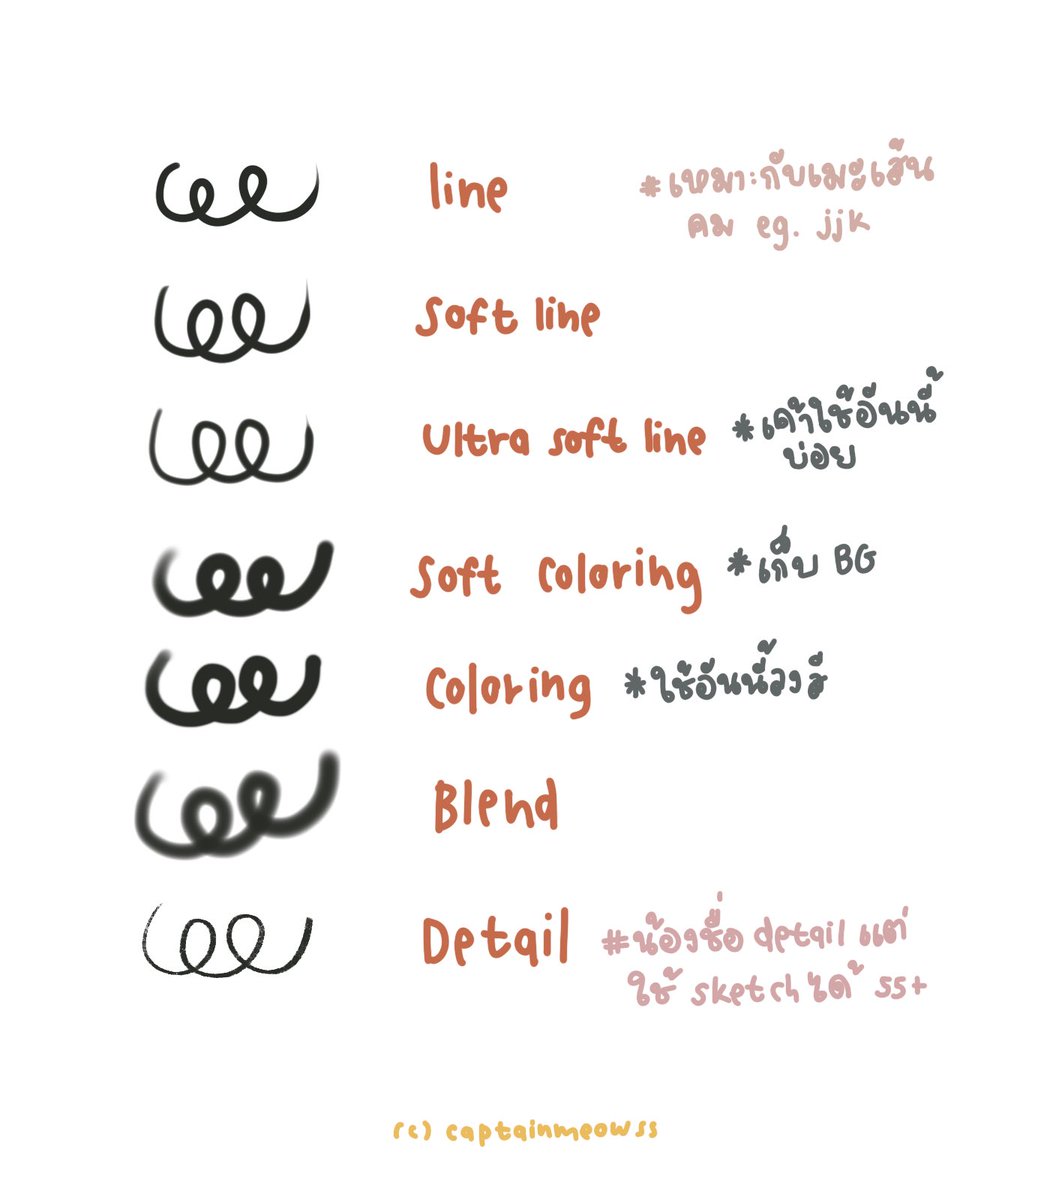 line
*เหมาะกับเมะเส้น
คม eg. jjk
Soft line
Ultra soft line
*เค้าใช้อันนี้
บ่อย
Soft Coloring
*เก็บ BG
Coloring
*ใช้อันนี้ลงสี
Blend
Detail
#น้องชื่อ detail แต่
ใช้ sketch ได้ 55+
(c) captainmeowss